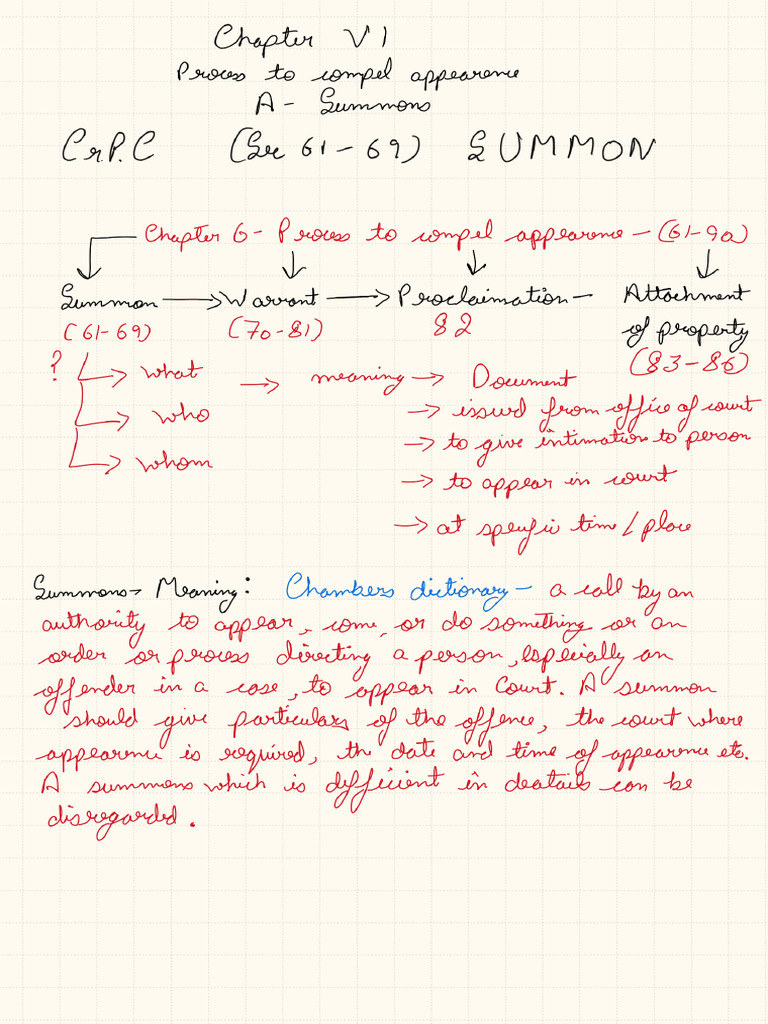 Chapter VI
Process to compel appearence
A - Summons
Cr.P.C (Sec 61-69) SUMMON
Chapter 6 - Process to compel appearence - (61-90)
Summon → Warrant → Proclaimation - Attachment
of property
(61-69) (70-81) 82
(83-86)
? → what → meaning → Document
→ issued from office of court
→ who
→ to give intimation to person
→ whom
→ to appear in court
→ at specific time / place
Summons → Meaning: Chambers dictionary - a call by an
authority to appear, come, or do something or an
order or process directing a person, especially an
offender in a case, to appear in Court. A summon
should give particulars of the offence, the court where
appearence is required, the date and time of appearence etc.
A summons which is difficient in deatails can be
disregarded.